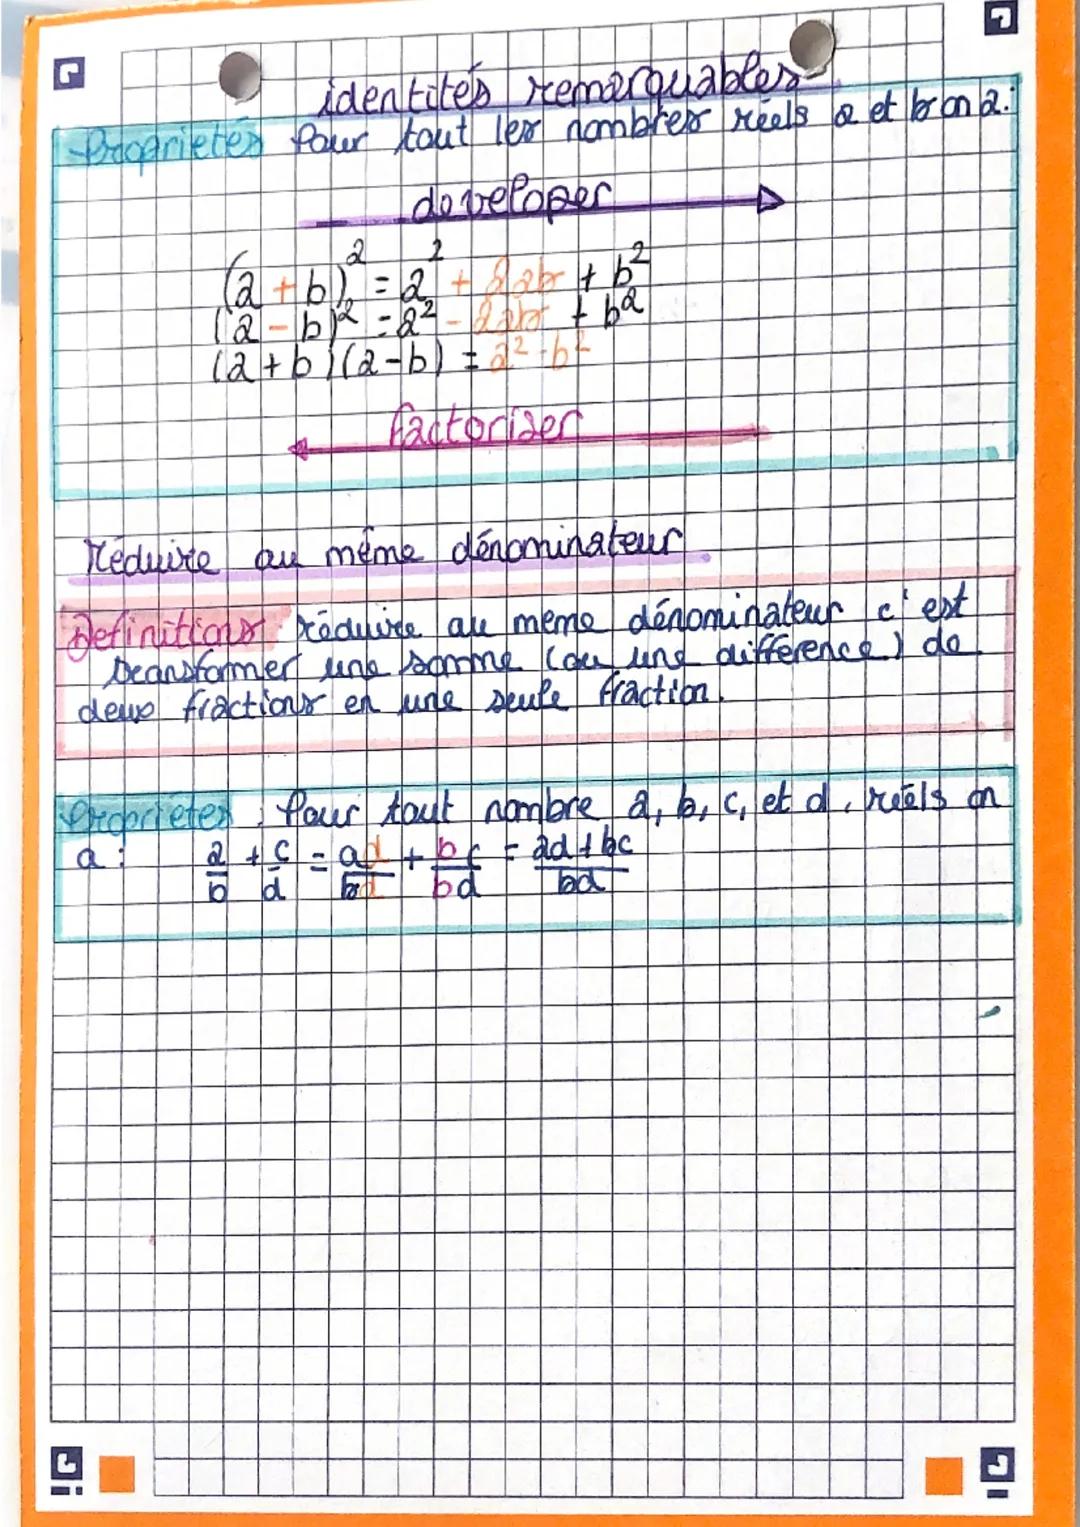 identités remarquables
Proprietés Pour tout les nombres réels a et b on a :
developer
(a + b)² = a² + 2ab + b²
(a - b)² = a² - 2ab + b²
(a + b)(a - b) = a² - b²
factoriser
réduire au même dénominateur
Definitions réduire au meme dénominateur c'est
transformer une somme (ou une différence) de
deux fractions en une seule fraction.
Proprietes : Pour tout nombre a, b, c, et d, réels on
a : a/b + c/d = ad/bd + bc/bd = ad+bc/bd